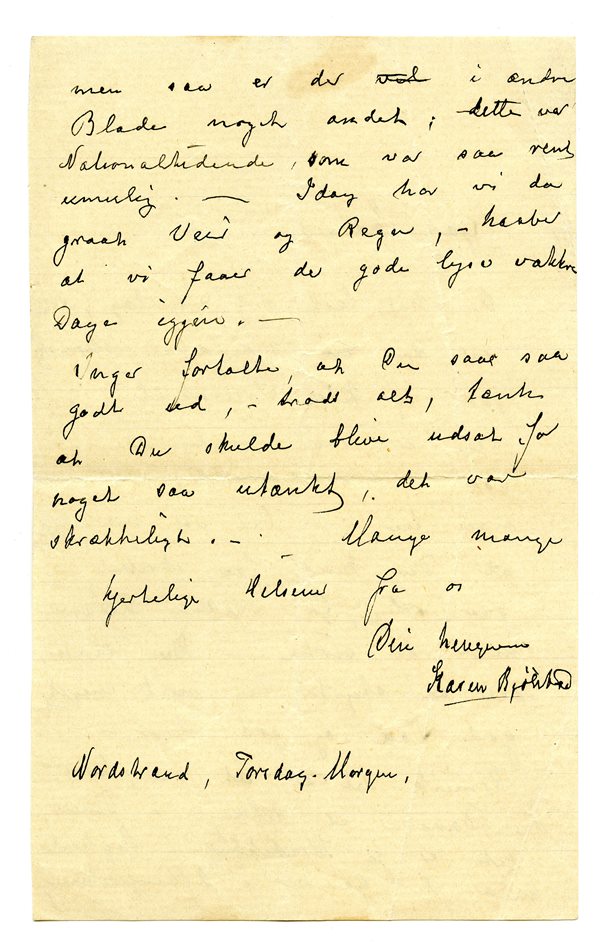 men saa er der vel i andre
Blade noget andet; dette var
Nationaltidende, som var saa rent
umulig. — Idag har vi da
graat Veir og Regn, – haaber
at vi faaer de gode lyse vakkre
Dage iggjen. —
Inger fortalte, at Du saae saa
godt ud, – trods alt, tænk
at Du skulde blive udsat for
noget saa utænkt, det var
skrækkeligt. — Mange mange
hjertelige Hilsener fra os
Din hengivne
Karen Bjølstad
Nordstrand, Torsdag-Morgen,